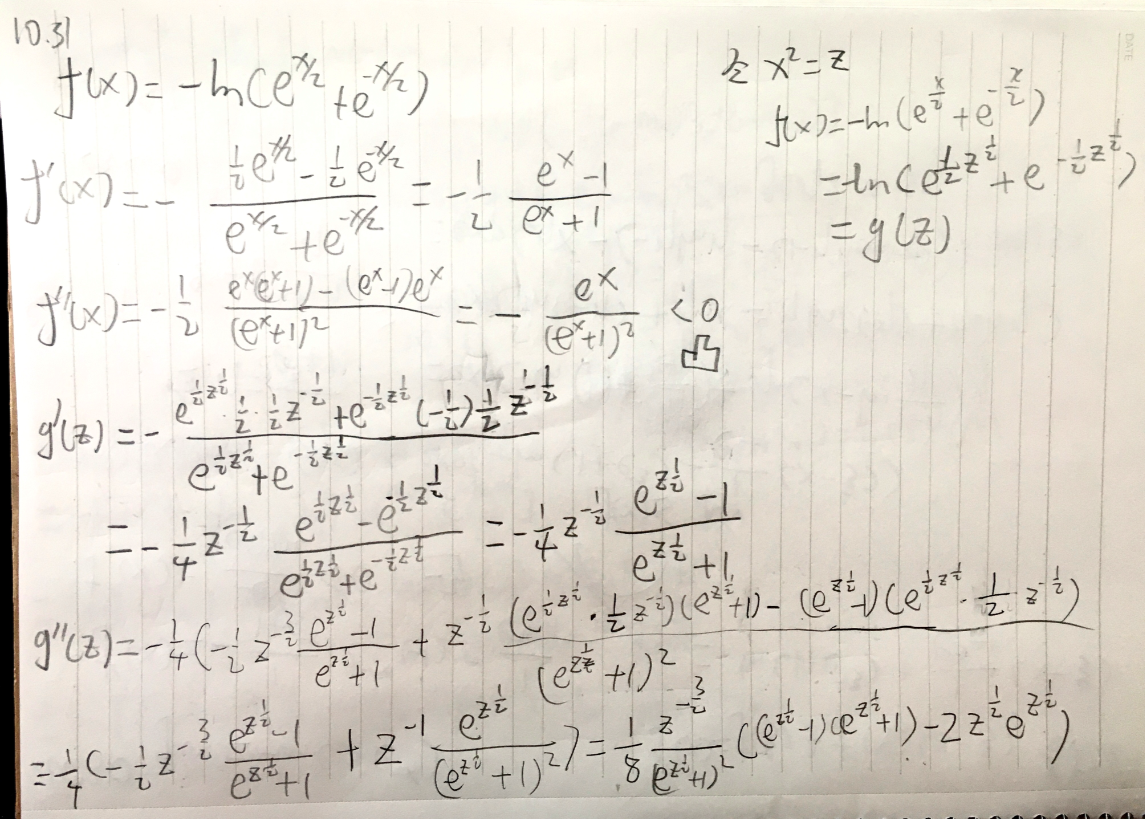 10.31
f(x) = -ln(e^{x/2} + e^{-x/2})
f'(x) = - \frac{\frac{1}{2}e^{x/2} - \frac{1}{2}e^{-x/2}}{e^{x/2} + e^{-x/2}} = -\frac{1}{2} \frac{e^x - 1}{e^x + 1}
f''(x) = -\frac{1}{2} \frac{e^x(e^x+1) - (e^x-1)e^x}{(e^x+1)^2} = - \frac{e^x}{(e^x+1)^2} < 0 凸
令 x^2 = z
f(x) = -ln(e^{\frac{x}{2}} + e^{-\frac{x}{2}})
= -ln(e^{\frac{1}{2}z^{\frac{1}{2}}} + e^{-\frac{1}{2}z^{\frac{1}{2}}})
= g(z)
g'(z) = - \frac{e^{\frac{1}{2}z^{\frac{1}{2}}} \cdot \frac{1}{2} \cdot \frac{1}{2}z^{-\frac{1}{2}} + e^{-\frac{1}{2}z^{\frac{1}{2}}} (-\frac{1}{2}) \frac{1}{2} z^{-\frac{1}{2}}}{e^{\frac{1}{2}z^{\frac{1}{2}}} + e^{-\frac{1}{2}z^{\frac{1}{2}}}}
= -\frac{1}{4} z^{-\frac{1}{2}} \frac{e^{\frac{1}{2}z^{\frac{1}{2}}} - e^{-\frac{1}{2}z^{\frac{1}{2}}}}{e^{\frac{1}{2}z^{\frac{1}{2}}} + e^{-\frac{1}{2}z^{\frac{1}{2}}}} = -\frac{1}{4} z^{-\frac{1}{2}} \frac{e^{z^{\frac{1}{2}}} - 1}{e^{z^{\frac{1}{2}}} + 1}
g''(z) = -\frac{1}{4} (-\frac{1}{2} z^{-\frac{3}{2}} \frac{e^{z^{\frac{1}{2}}} - 1}{e^{z^{\frac{1}{2}}} + 1} + z^{-\frac{1}{2}} \frac{(e^{\frac{1}{2}z^{\frac{1}{2}}} \cdot \frac{1}{2} z^{-\frac{1}{2}})(e^{z^{\frac{1}{2}}} + 1) - (e^{z^{\frac{1}{2}}} - 1)(e^{\frac{1}{2}z^{\frac{1}{2}}} \cdot \frac{1}{2} z^{-\frac{1}{2}})}{(e^{z^{\frac{1}{2}}} + 1)^2}
= -\frac{1}{4} (-\frac{1}{2} z^{-\frac{3}{2}} \frac{e^{z^{\frac{1}{2}}} - 1}{e^{z^{\frac{1}{2}}} + 1} + z^{-1} \frac{e^{z^{\frac{1}{2}}}}{(e^{z^{\frac{1}{2}}} + 1)^2}) = \frac{1}{8} \frac{z^{-\frac{3}{2}}}{(e^{z^{\frac{1}{2}}} + 1)^2} ((e^{z^{\frac{1}{2}}} - 1)(e^{z^{\frac{1}{2}}} + 1) - 2z^{\frac{1}{2}} e^{z^{\frac{1}{2}}})
DATE